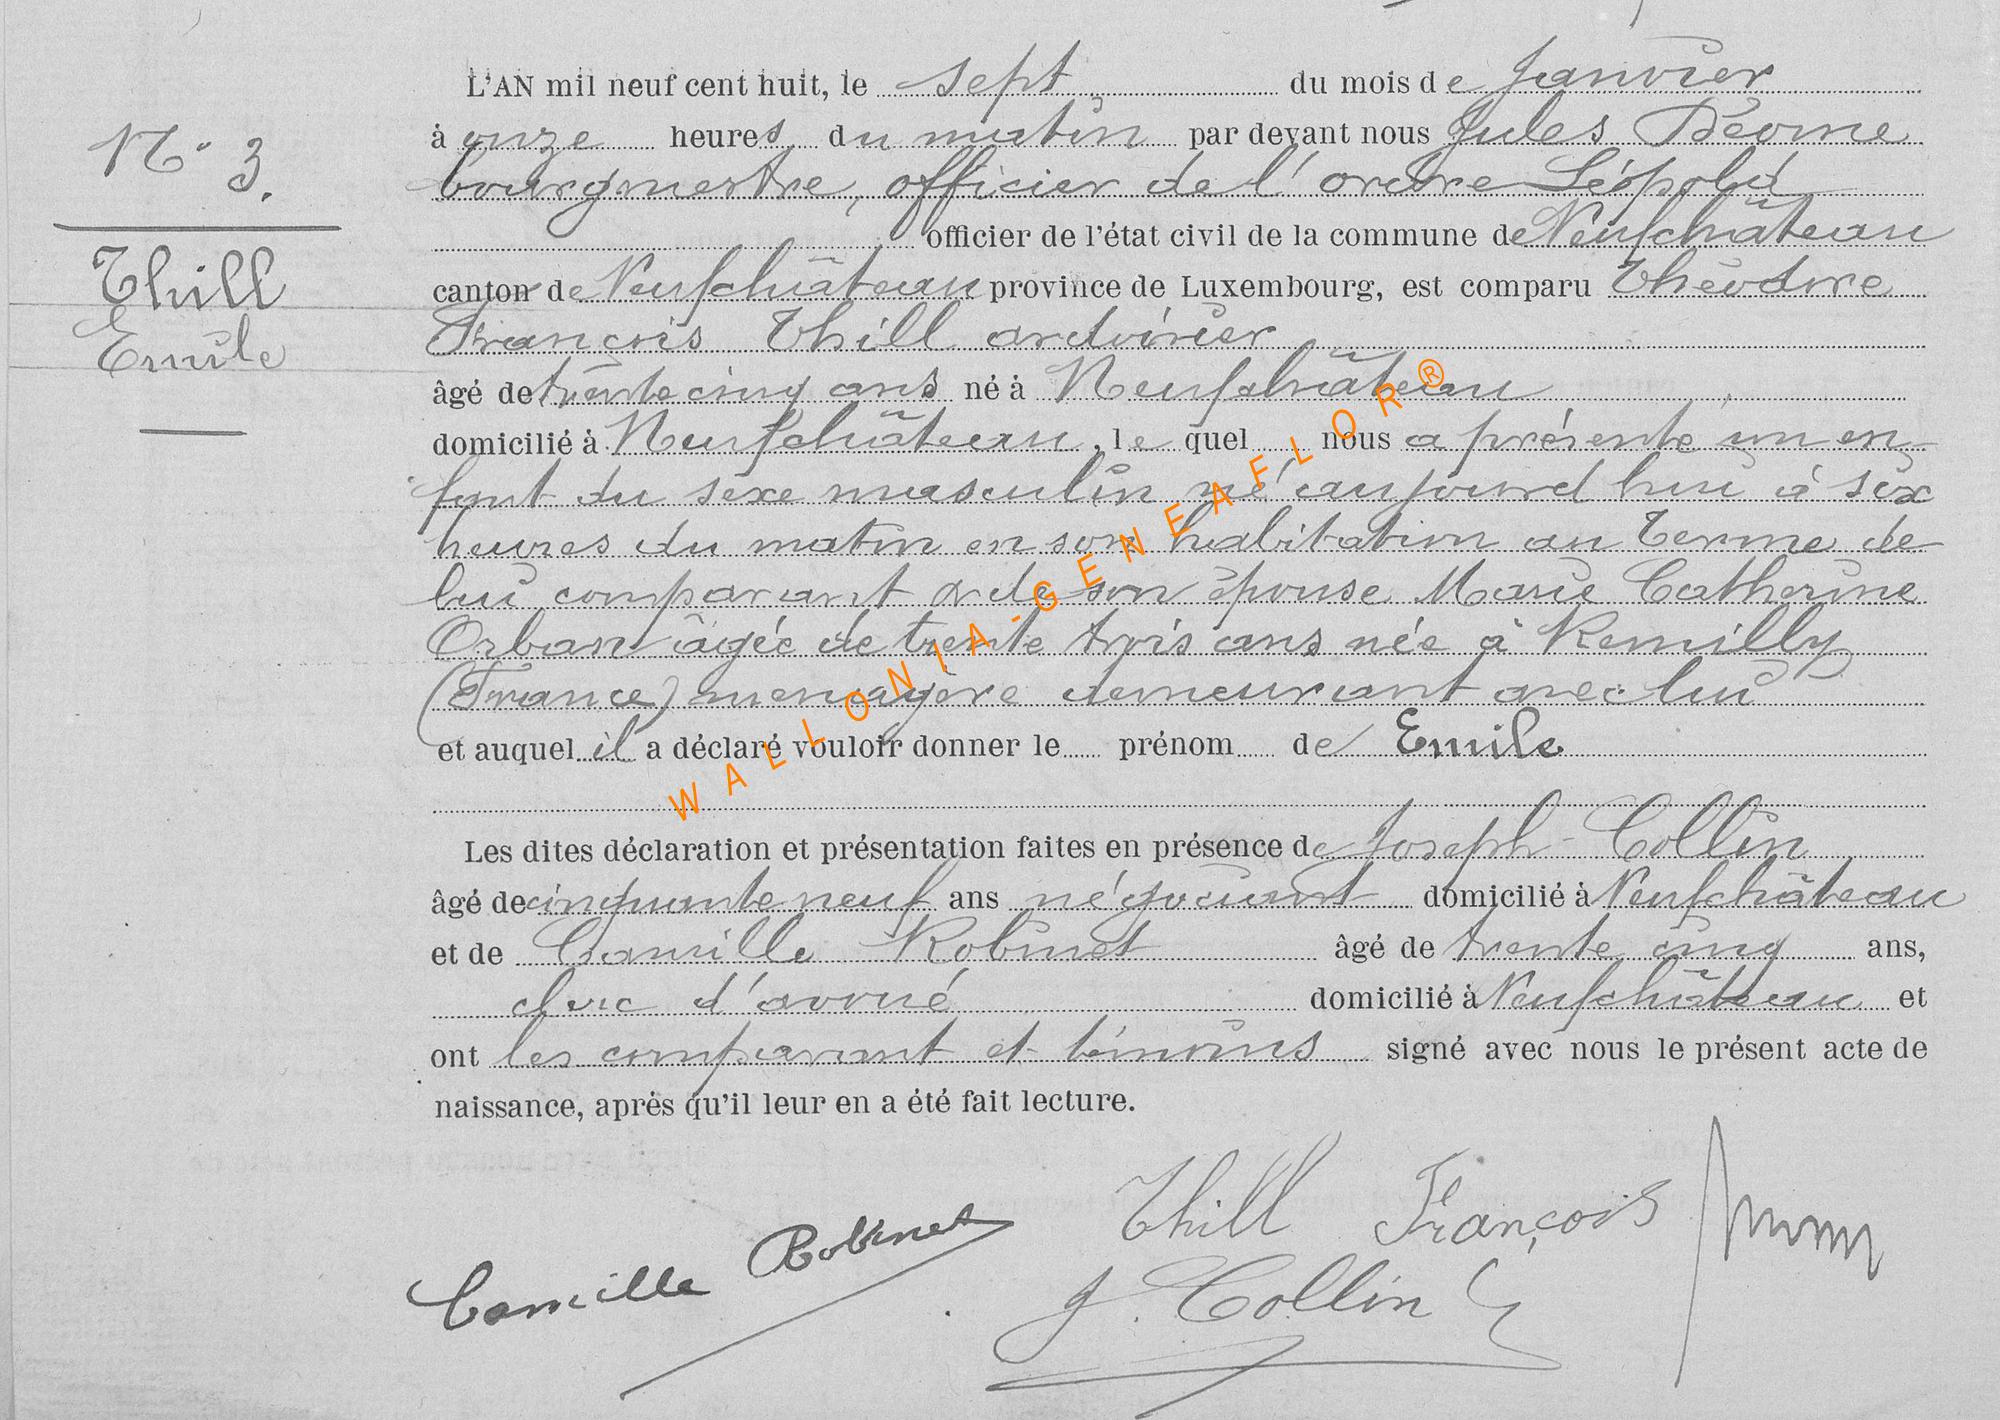 N° 3.
Thill
Emile
L'AN mil neuf cent huit, le sept du mois de Janvier
à onze heures du matin par devant nous Jules
bourgmestre, officier de l'ordre Léopold
officier de l'état civil de la commune de Neufchâteau
canton de Neufchâteau province de Luxembourg, est comparu Théodore
François Thill ardoisier
âgé de trente cinq ans né à Neufchâteau
domicilié à Neufchâteau, le quel nous a présenté un en-
fant du sexe masculin né aujourd hui à six
heures du matin en son habitation au Terme de
lui comparant et de son épouse Marie Catherine
Orban âgée de trente trois ans née à Remilly
(France) menagère demeurant avec lui
et auquel il a déclaré vouloir donner le prénom de Emile
Les dites déclaration et présentation faites en présence de Joseph Collin
âgé de cinquante neuf ans négociant domicilié à Neufchâteau
et de Camille Robinet âgé de trente cinq ans,
clerc d'avoué domicilié à Neufchâteau et
ont les comparant et témoins signé avec nous le présent acte de
naissance, après qu'il leur en a été fait lecture.
Thill François
Camille Robinet
J. Collin
WALLONIA-GENEAFLOR®